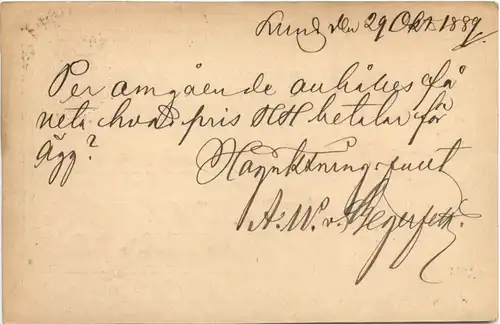 Lund den 29 Okt. 1889
Per omgående anhålles få
veta hvad pris HH betalar för
Ägg?
Högaktningsfullt
A. W. v.